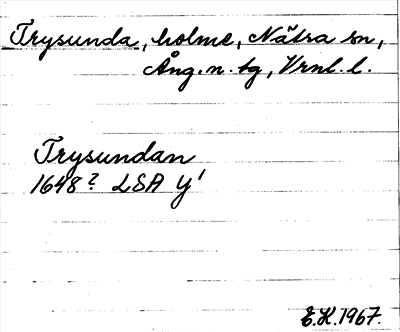 Trysunda, holme, Nätra sn,
Ång. n. tg, Vrnl. l.
Trysundan
1648? LSA Y'
E.H. 1967.